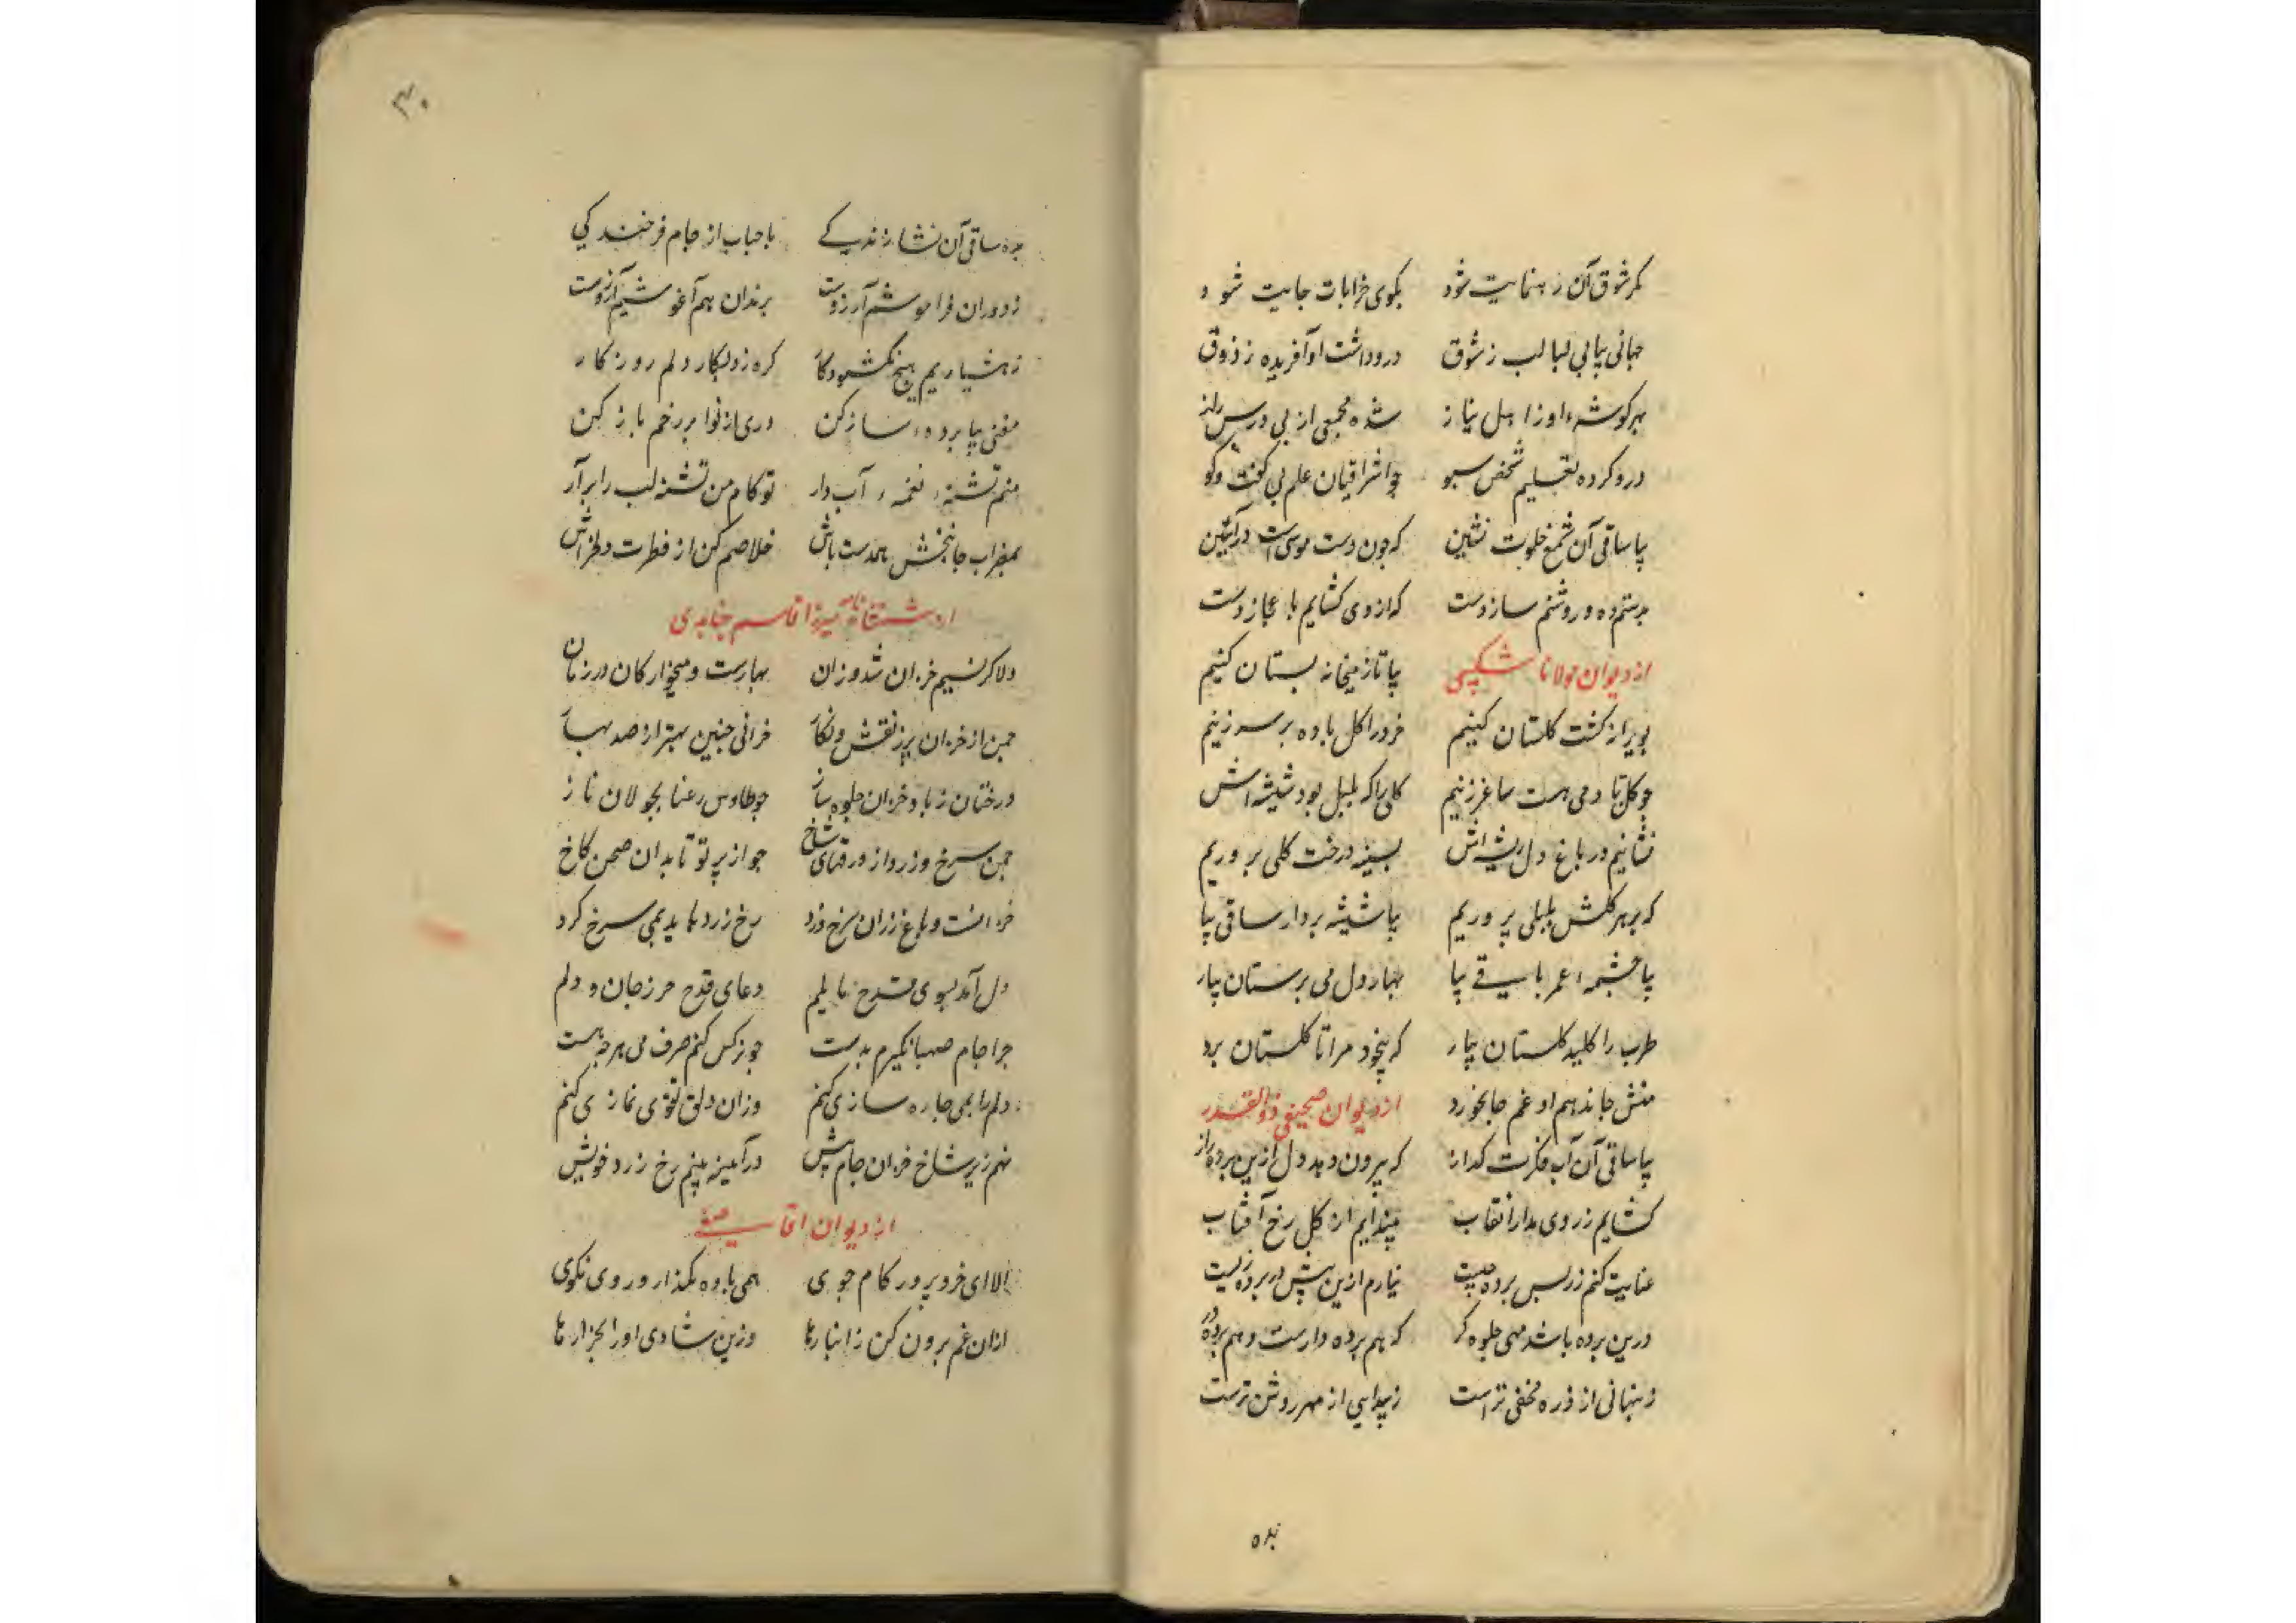 مکر شوق آن رهنمایت شود بکوی خرابات جایت شود
جهانی پیابی لبالب ز شوق درو داشت او آفریده ز ذوق
بهر کوشهٔ او ز اهل نیاز شده مجمعی از پی درس راز
درو کرده تعلیم شخص سبو چو اشراقیان علم بی کفت وکو
بیا ساقی آن شمع خلوت نشین که چون دست موسی است در آستین
بدستم ده و روشنم ساز دست که از وی کشایم باعجاز دست
از دیوان مولانا شکیبی بیا تا ز میخانه بستان کنیم
بویرانه کشت کلستان کنیم خرد را کل باده بر سر زنیم
چو کل تا دمی هست ساغر زنیم کلی را که بلبل بود شیشه اش
نشانیم در باغ دل ریشه اش بسینه درخت کلی بر وریم
که بر هر کلش بلبلی پروریم بیا شیشه بردار ساقی بیا
بیا چشمهٔ عمر باقی بیا بهار دل می پرستان بیار
طرب را کلید کلستان بیار که بیخود مرا تا کلستان برد
منش جاندهم او غم جانخورد از دیوان صحیفی ذوالقدر
بیا ساقی آن آب فکرت کداز که بیرون دهد دل ازین پرده راز
کشایم ز روی مدارا نقاب بیندایم از کل رخ آفتاب
عنایت کنم زلس پرده چیست نیارم ازین بیش در پرده زیست
درین پرده باشد مهی جلوه کر که هم پرده دارست و هم پرده در
ز پنهانی از ذره مخفی تر است ز پیدایی از مهر روشن ترست
بده
۳۰
بده ساقی آن نشاء زندکے باحباب از جام فرخندکی
ز دوران فراموشیم آرزوست برندان هم آغوشیم آرزوست
ز هشیاریم هیچ نکشود کار کره زد بکار دلم روزکار
مغنی بیا پردهٔ ساز کن دری از نوا بر رخم باز کن
منم تشنهٔ نغمهٔ آب دار تو کام من تشنه لب را برآر
بمضراب جانبخش همدست باش خلاصم کن از فطرت دلخراش
از ساقی نامه میرزا قاسم جنابدی
دلا کر نسیم خزان شد وزان بهارست و میخوارکان در زمان
چمن از خزان پر ز نقش و نکار خزانی چنین بهتر از صد بهار
درختان ز باد خزان جلوه ساز چو طاوس رعنا بجولان ناز
چمن سرخ و زرد از ورقهای شاخ چو از پرتو تابدان صحن کاخ
خزانست و باغ رزان سرخ و زرد رخ زرد باید بمی سرخ کرد
دل آمد بسوی قدح مایلم دعای قدح حرز جان و دلم
چرا جام صهبا نکیرم بدست چو نرکس کنم صرف می هر چه هست
دلم را بمی چاره سازی کنم وزان دلق تقوی نمازی کنم
نهم زیر شاخ خزان جام پیش در آئینه بینم رخ زرد خویش
از دیوان اقا صفی
الا ای خرد پرور کام جوی همی باده بکذار و روی نکوی
ازان غم برون کن ز انبارها وزین شادی اور بخروارها